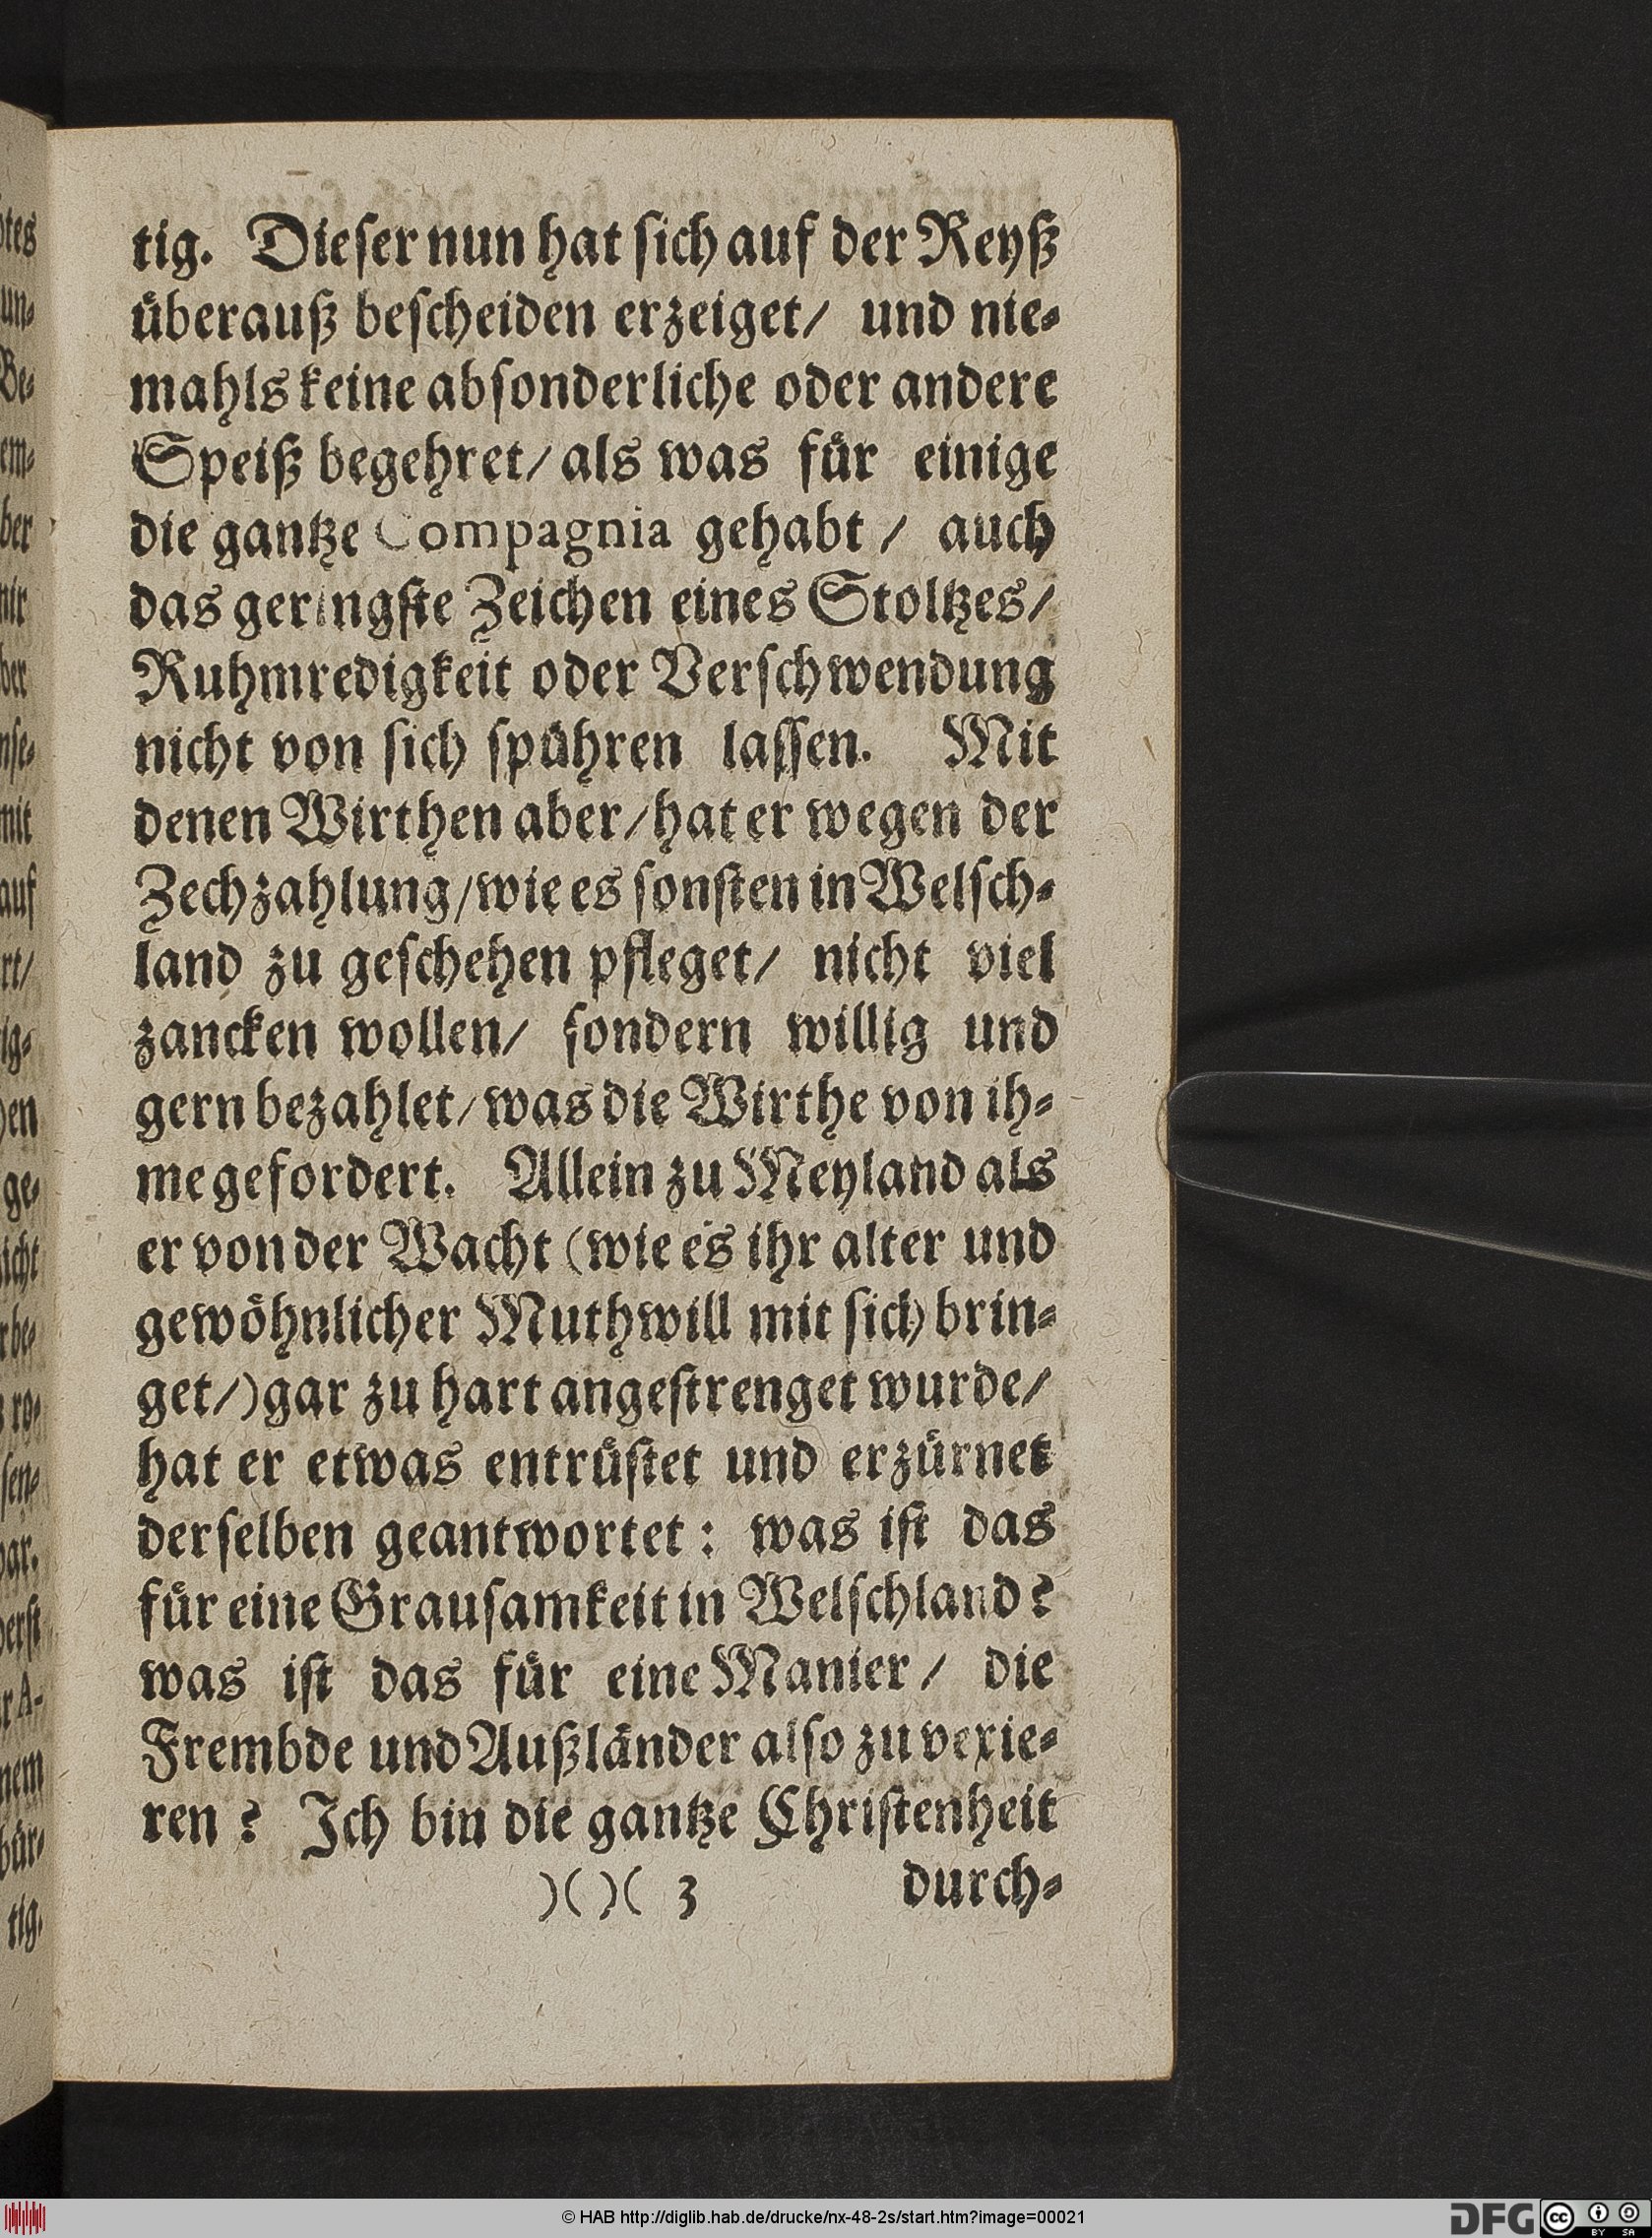 tig. Dieser nun hat sich auf der Reyß
überauß bescheiden erzeiget/ und nie-
mahls keine absonderliche oder andere
Speiß begehret/ als was für einige
die gantze Compagnia gehabt / auch
das geringste Zeichen eines Stoltzes/
Ruhmredigkeit oder Verschwendung
nicht von sich spühren lassen. Mit
denen Wirthen aber/ hat er wegen der
Zechzahlung/ wie es sonsten in Welsch-
land zu geschehen pfleget/ nicht viel
zancken wollen/ sondern willig und
gern bezahlet/ was die Wirthe von ih-
me gefordert. Allein zu Meyland als
er von der Wacht (wie es ihr alter und
gewöhnlicher Muthwill mit sich brin-
get/) gar zu hart angestrenget wurde/
hat er etwas entrüstet und erzürnet
derselben geantwortet: was ist das
für eine Grausamkeit in Welschland?
was ist das für eine Manier / die
Frembde und Außländer also zu vexie-
ren ? Ich bin die gantze Christenheit
)( )( 3 durch-
© HAB http://diglib.hab.de/drucke/nx-48-2s/start.htm?image=00021
DFG
cc BY SA